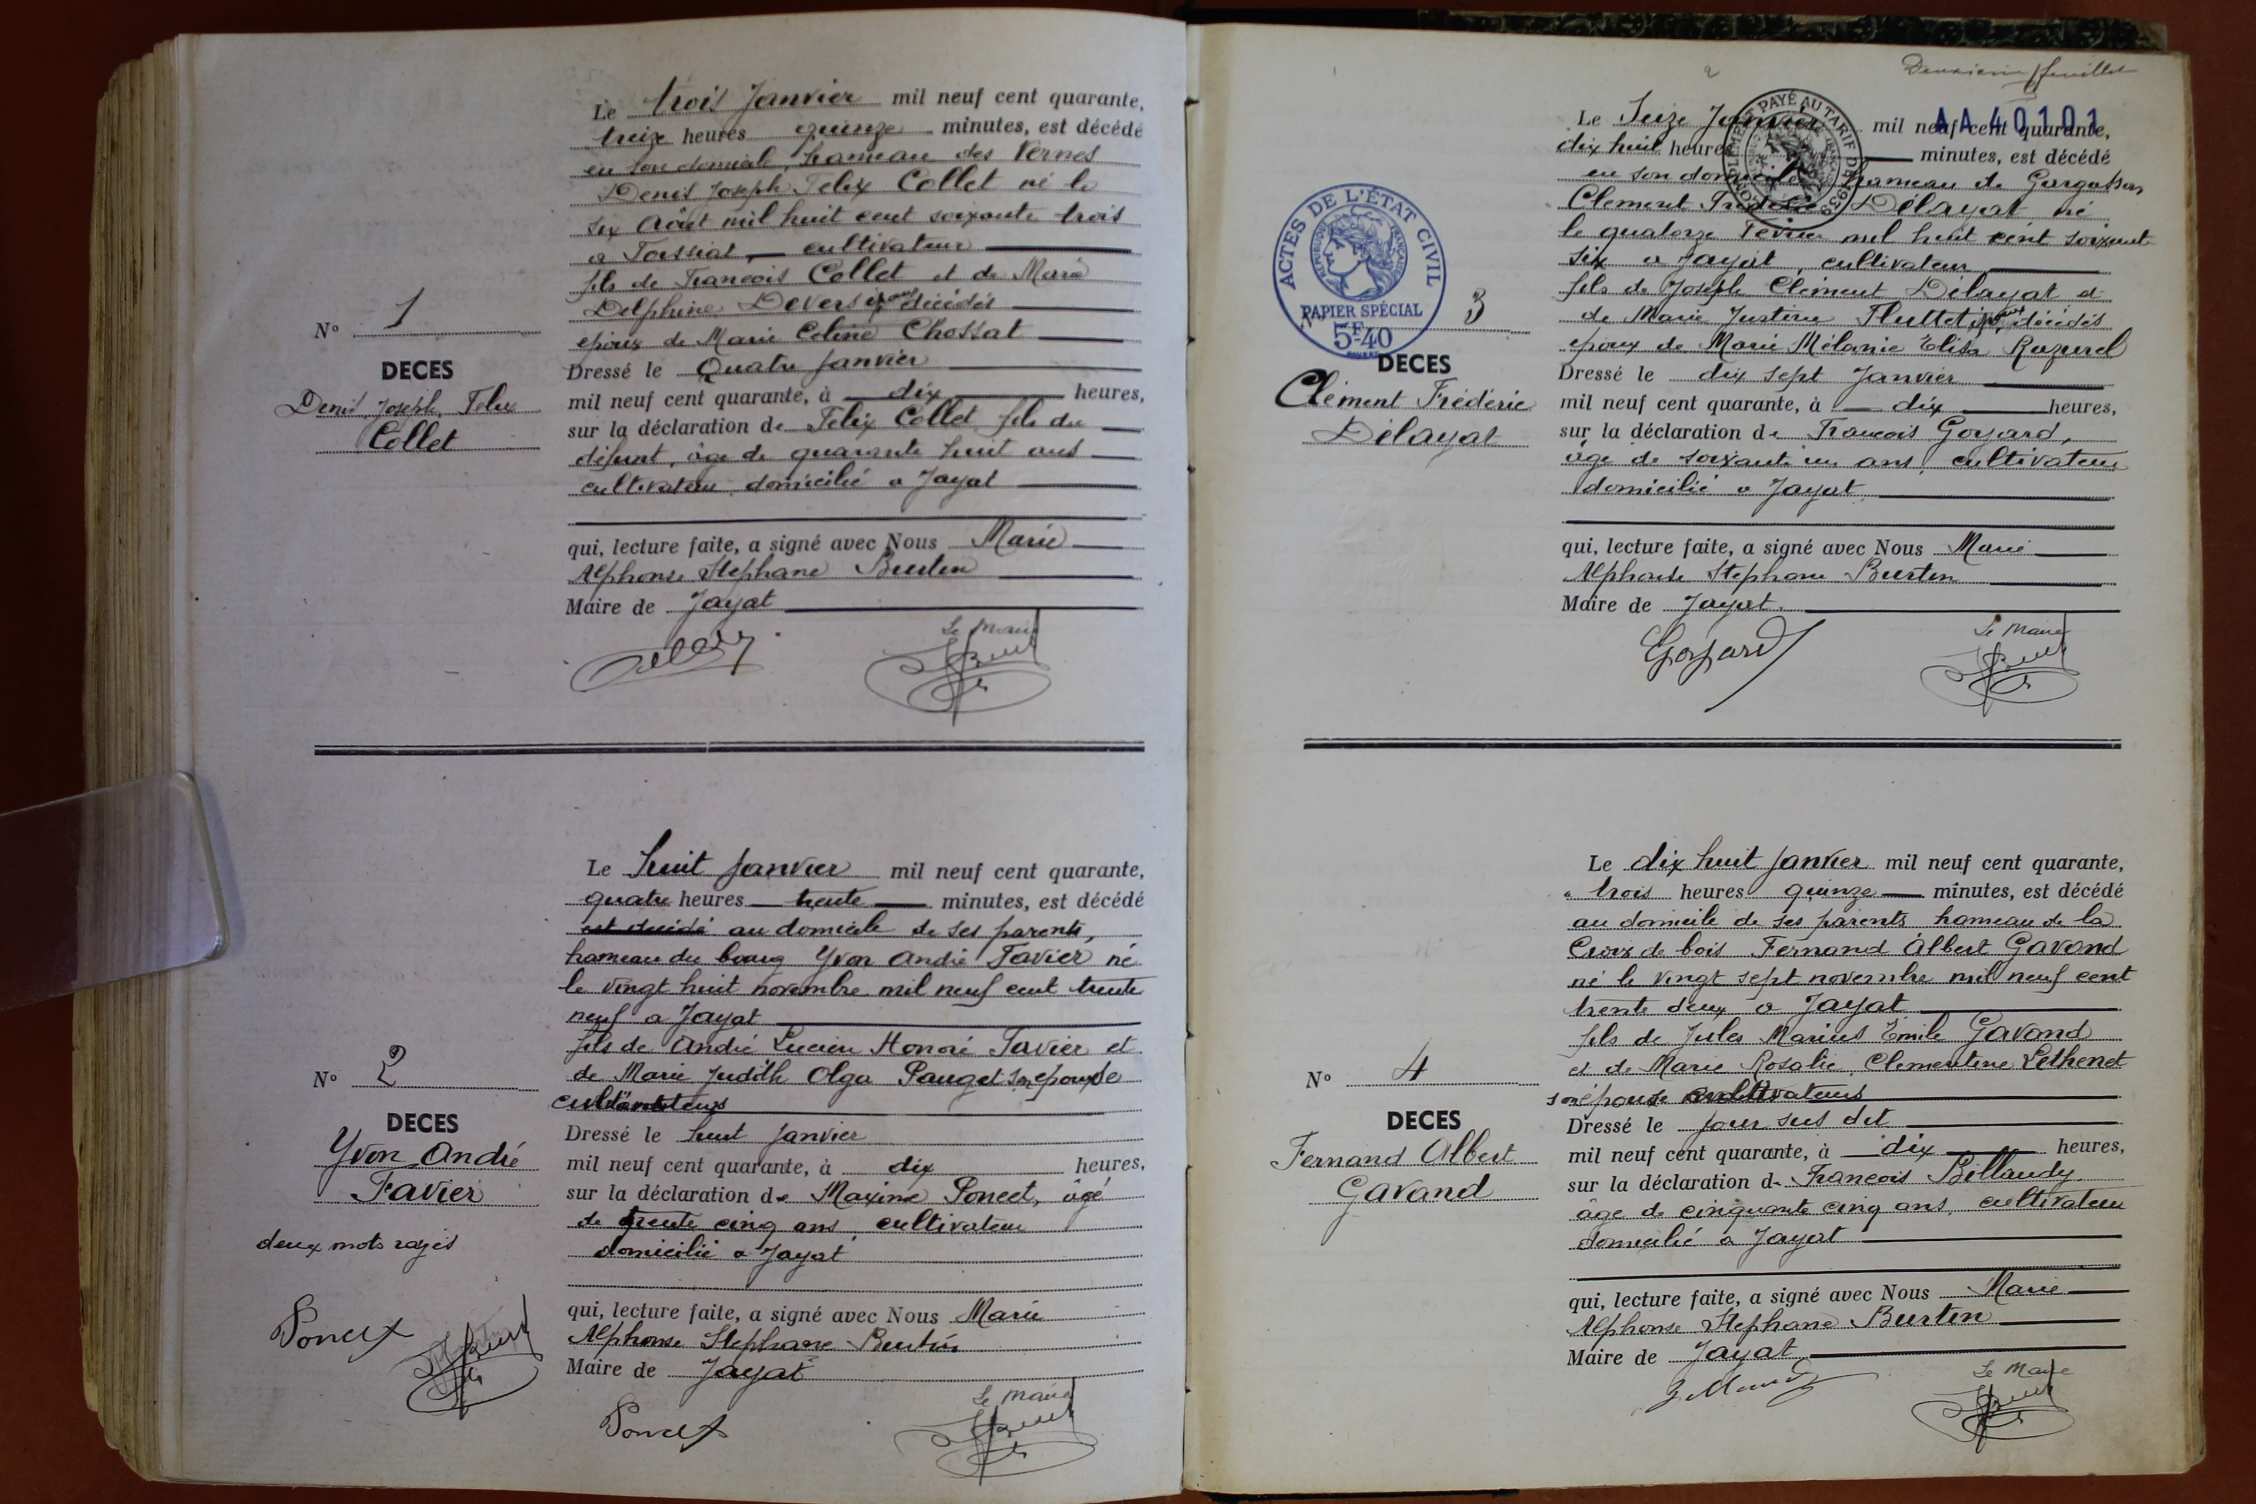 Le trois Janvier mil neuf cent quarante,
treize heures quinze minutes, est décédé
en son domicile, hameau des Vernes
Denis Joseph Felix Collet né le
six Août mil huit cent soixante trois
a Tossiat, cultivateur
fils de François Collet et de Marie
Delphine Devers époux décédés
époux de Marie Celine Chossat
N° 1
DECES
Denis, Joseph, Felix
Collet
Dressé le Quatre janvier
mil neuf cent quarante, à dix heures,
sur la déclaration de Felix Collet fils du
défunt, âge de quarante huit ans
cultivateur, domicilié a Jayat
qui, lecture faite, a signé avec Nous Marie
Alphonse Stephane Burtin
Maire de Jayat
Le Maire
Le huit janvier mil neuf cent quarante,
quatre heures trente minutes, est décédé
est décédé au domicile de ses parents,
hameau du bourg Yvon André Favier né
le vingt huit novembre mil neuf cent trente
neuf a Jayat
fils de André Lucien Honoré Favier et
de Marie Judith Olga Pauget son epouse
cultivateurs
N° 2
DECES
Yvon André
Favier
deux mots rayés
Poncet
Dressé le huit janvier
mil neuf cent quarante, à dix heures,
sur la déclaration de Maxime Poncet, âgé
de trente cinq ans, cultivateur
domicilié a Jayat
qui, lecture faite, a signé avec Nous Marie
Alphonse Stephane Burtin
Maire de Jayat
Le Maire
Poncet
2
Deuxième feuillet
AA 40101
COMPLEMENT PAYÉ AU TARIF DE 1939
Le Seize Janvier mil neuf cent quarante,
dix huit heures minutes, est décédé
en son domicile hameau de
Clement Frédéric Délayat né
le quatorze Février mil huit cent soixante
six a Jayat, cultivateur
fils de Joseph Clément Délayat et
de Marie Justine époux décédés
epoux de Marie Mélanie Elisa Razurel
ACTES DE L'ÉTAT CIVIL
RÉPUBLIQUE FRANÇAISE
PAPIER SPÉCIAL
5F.40
3
DECES
Clément Frédéric
Délayat
Dressé le dix sept Janvier
mil neuf cent quarante, à dix heures,
sur la déclaration de François Goyard,
âge de soixante un ans, cultivateur
domicilié a Jayat
qui, lecture faite, a signé avec Nous Marie
Alphonse Stephane Burtin
Maire de Jayat.
Goyard
Le Maire
Le dix huit janvier mil neuf cent quarante,
à trois heures quinze minutes, est décédé
au domicile de ses parents hameau de la
Croix de bois Fernand Albert Gavand
né le vingt sept novembre mil neuf cent
trente deux a Jayat
fils de Jules Marius Émile Gavand
et de Marie Rosalie, Clementine Lethenet
son épouse cultivateurs
N° 4
DECES
Fernand Albert
Gavand
Dressé le jour sus dit
mil neuf cent quarante, à dix heures,
sur la déclaration de François Billaudy
âge de cinquante cinq ans, cultivateur
domicilié a Jayat
qui, lecture faite, a signé avec Nous Marie
Alphonse Stephane Burtin
Maire de Jayat
Le Maire